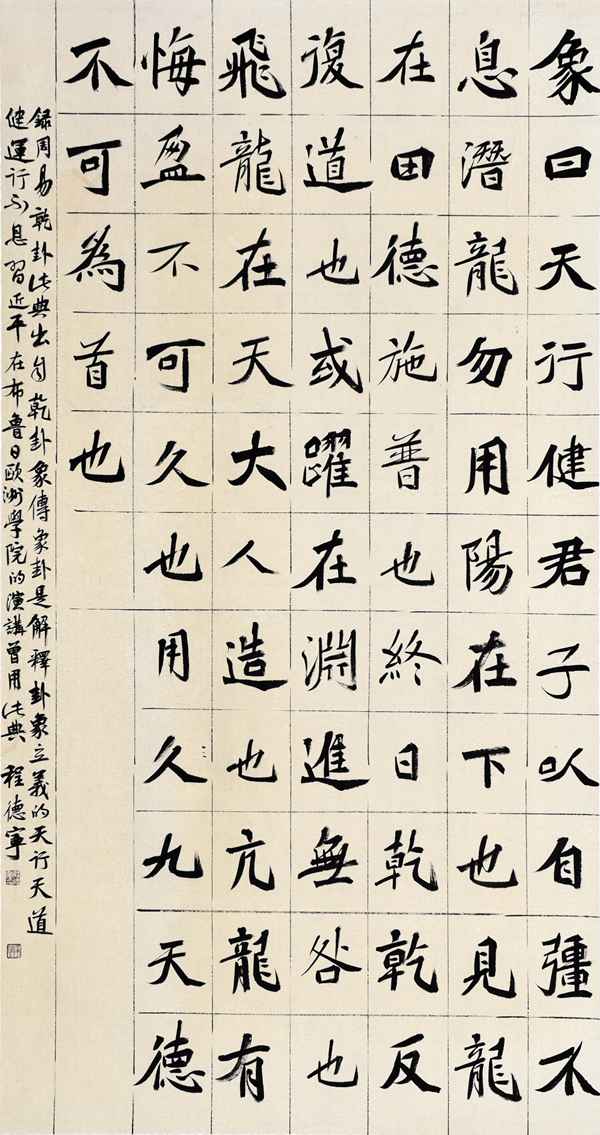 象曰天行健君子以自彊不
息潛龍勿用陽在下也見龍
在田德施普也終日乾乾反
復道也或躍在淵進無咎也
飛龍在天大人造也亢龍有
悔盈不可久也用久九天德
不可為首也
録周易乾卦此典出自乾卦象傳象卦是解釋卦象立義的天行天道
健運行不息習近平在布魯日歐洲學院的演講曾用此典 程德寧